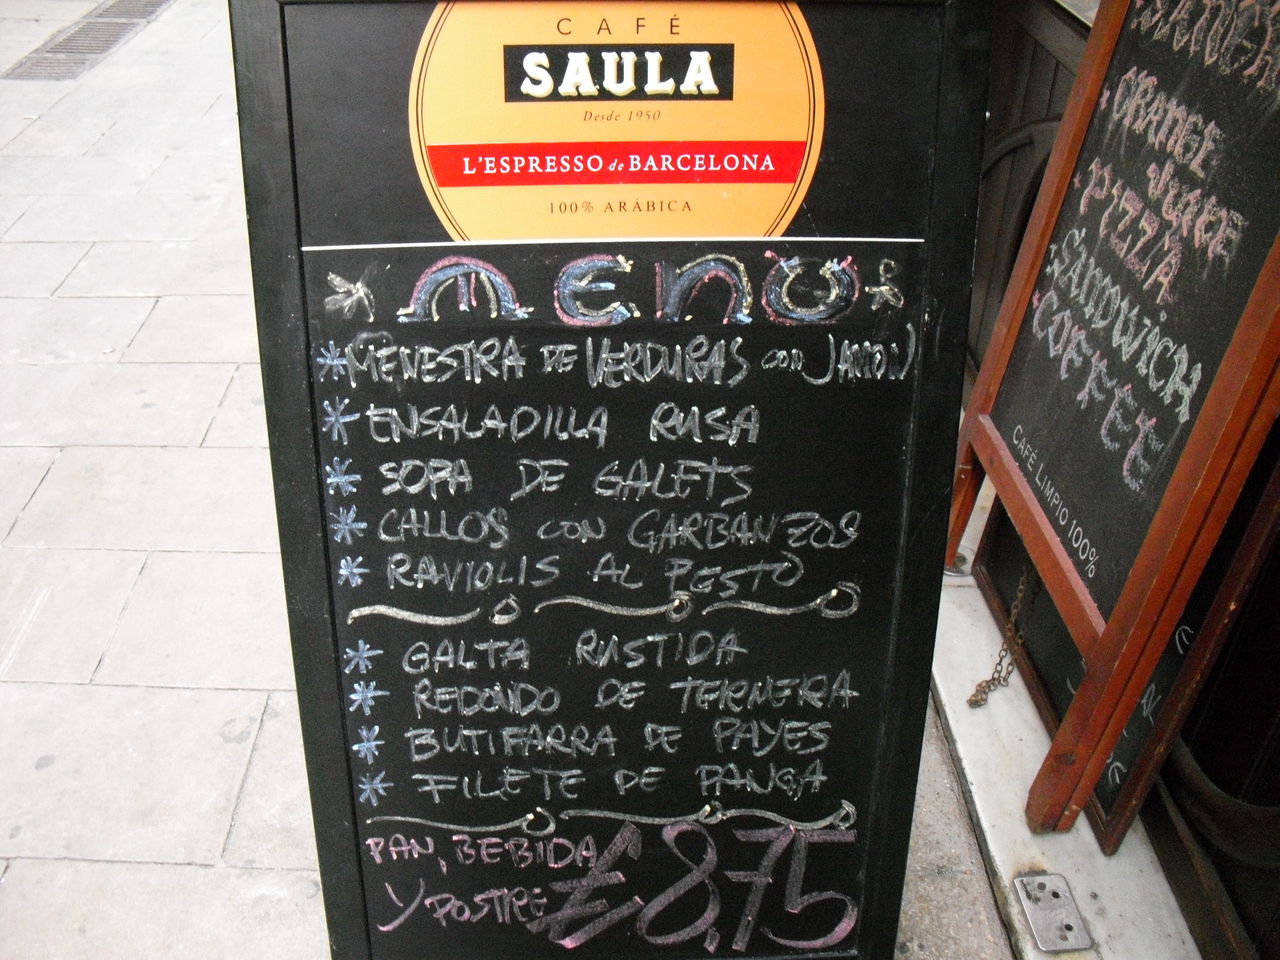 CAFÉ
SAULA
Desde 1950
L'ESPRESSO de BARCELONA
100% ARÁBICA
MENÚ
* MENESTRA DE VERDURAS CON JAMON
* ENSALADILLA RUSA
* SOPA DE GALETS
* CALLOS CON GARBANZOS
* RAVIOLIS AL PESTO
* GALTA RUSTIDA
* REDONDO DE TERNERA
* BUTIFARRA DE PAYES
* FILETE DE PANGA
PAN, BEBIDA
Y POSTRE € 8,75
ORANGE
JUICE
PIZZA
SANDWICH
COFFEE
CAFÉ LIMPIO 100%